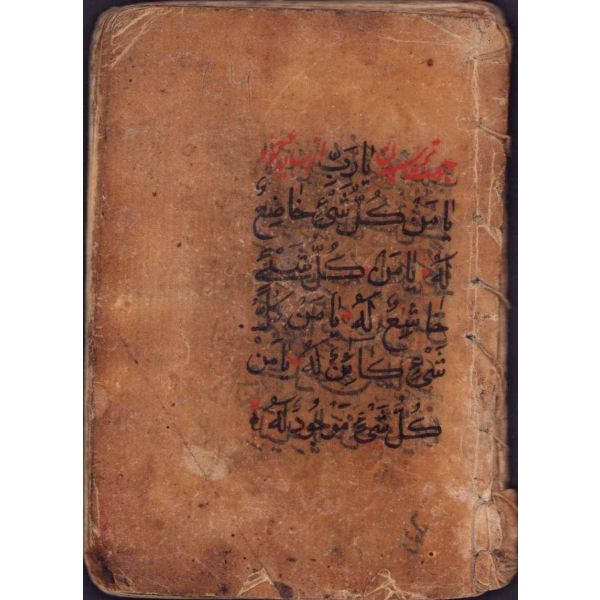 يَا رَبِّ
يَا مَنْ كُلُّ شَیْءٍ خَاضِعٌ
لَهُ يَا مَنْ كُلُّ شَیْءٍ
خَاشِعٌ لَهُ يَا مَنْ كُلُّ
شَیْءٍ كَائِنٌ لَهُ يَا مَنْ
كُلُّ شَیْءٍ مَوْجُودٌ لَهُ